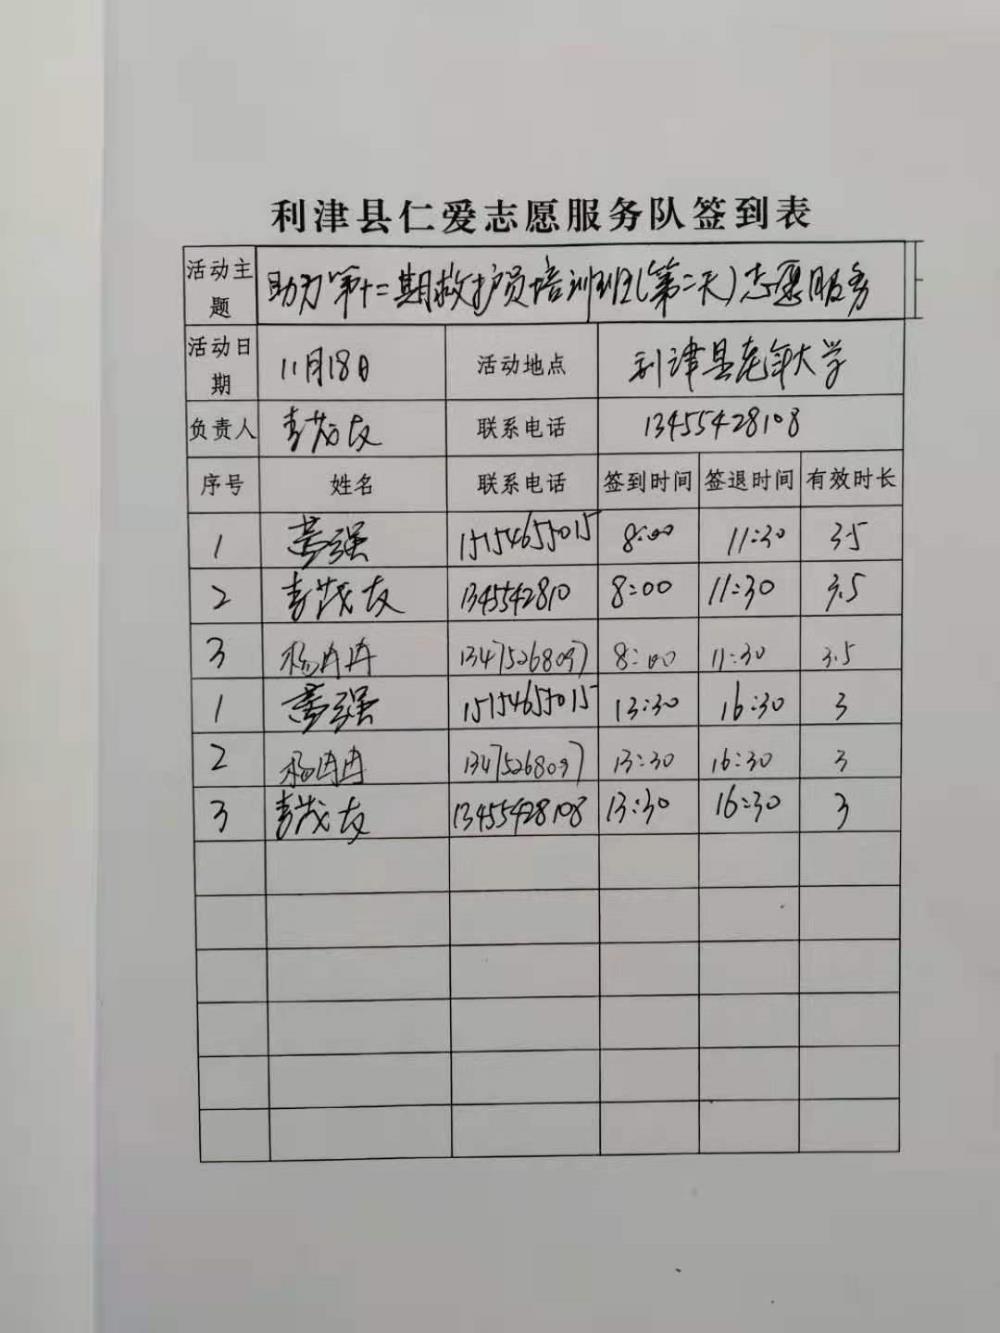 利津县仁爱志愿服务队签到表
活动主题 助力第十二期救护员培训班(第二天)志愿服务
活动日期 11月18日 活动地点 利津县老年大学
负责人 李茂友 联系电话 13455428108
序号 姓名 联系电话 签到时间 签退时间 有效时长
1 强 15154655015 8:00 11:30 3.5
2 李茂友 1345542810 8:00 11:30 3.5
3 杨冉冉 13475268097 8:00 11:30 3.5
1 强 15154655015 13:30 16:30 3
2 杨冉冉 13475268097 13:30 16:30 3
3 李茂友 13455428108 13:30 16:30 3